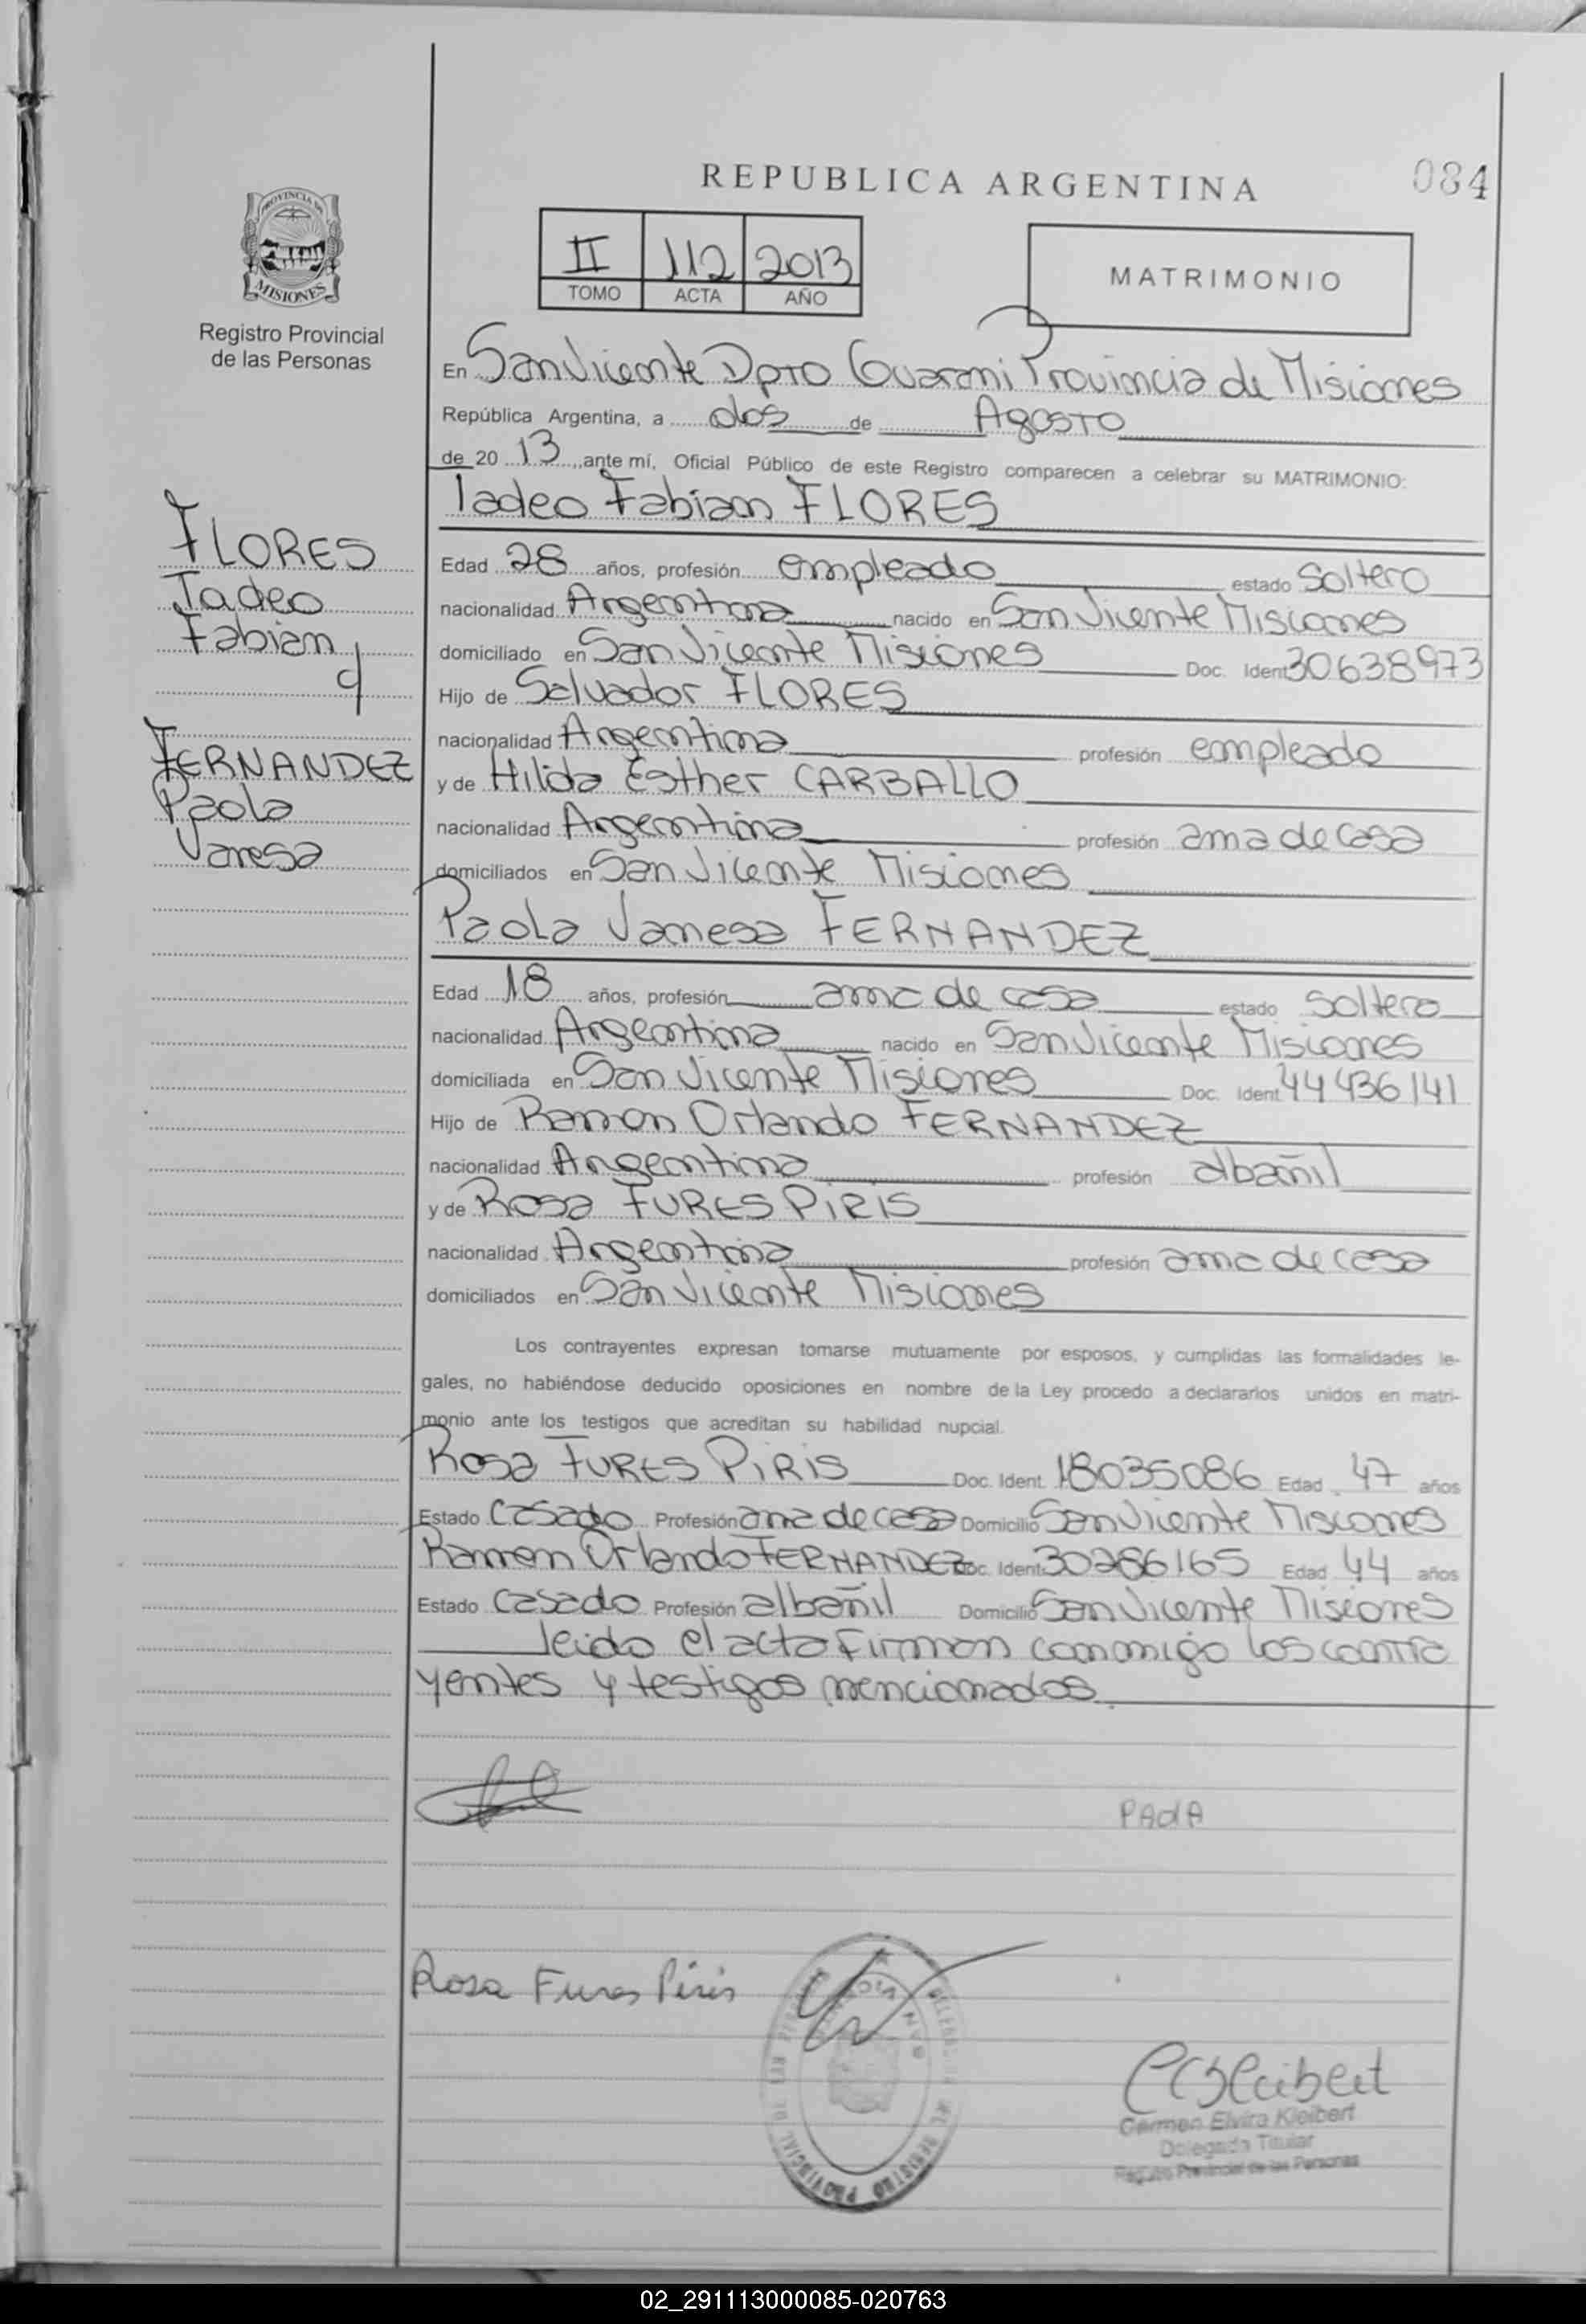 REPUBLICA ARGENTINA
084
PROVINCIA DE
MISIONES
Registro Provincial
de las Personas
II 112 2013
TOMO ACTA AÑO
MATRIMONIO
En San Vicente Dpto Guarani Provincia de Misiones
República Argentina, a dos de Agosto
de 20 13 ante mí, Oficial Público de este Registro comparecen a celebrar su MATRIMONIO:
Tadeo Fabian FLORES
FLORES
Tadeo
Fabian
c/
FERNANDEZ
Paola
Vanesa
Edad 28 años, profesión empleado estado Soltero
nacionalidad Argentina nacido en San Vicente Misiones
domiciliado en San Vicente Misiones Doc. Ident 30638973
Hijo de Salvador FLORES
nacionalidad Argentina profesión empleado
y de Hilda Esther CARBALLO
nacionalidad Argentina profesión ama de casa
domiciliados en San Vicente Misiones
Paola Vanesa FERNANDEZ
Edad 18 años, profesión ama de casa estado Soltera
nacionalidad Argentina nacido en San Vicente Misiones
domiciliada en San Vicente Misiones Doc. Ident 44436141
Hijo de Ramon Orlando FERNANDEZ
nacionalidad Argentina profesión albañil
y de Rosa FURES PIRIS
nacionalidad Argentina profesión ama de casa
domiciliados en San Vicente Misiones
Los contrayentes expresan tomarse mutuamente por esposos, y cumplidas las formalidades le-
gales, no habiéndose deducido oposiciones en nombre de la Ley procedo a declararlos unidos en matri-
monio ante los testigos que acreditan su habilidad nupcial.
Rosa FURES PIRIS Doc. Ident. 18035086 Edad 47 años
Estado Casado Profesión ama de casa Domicilio San Vicente Misiones
Ramon Orlando FERNANDEZ Doc. Ident 30286165 Edad 44 años
Estado Casado Profesión albañil Domicilio San Vicente Misiones
leido el acta firman conmigo los contra
yentes y testigos mencionados
PAOlA
Rosa Fures Piris
Carmen Elvira Kleibert
Delegada Titular
Registro Provincial de las Personas
02_291113000085-020763